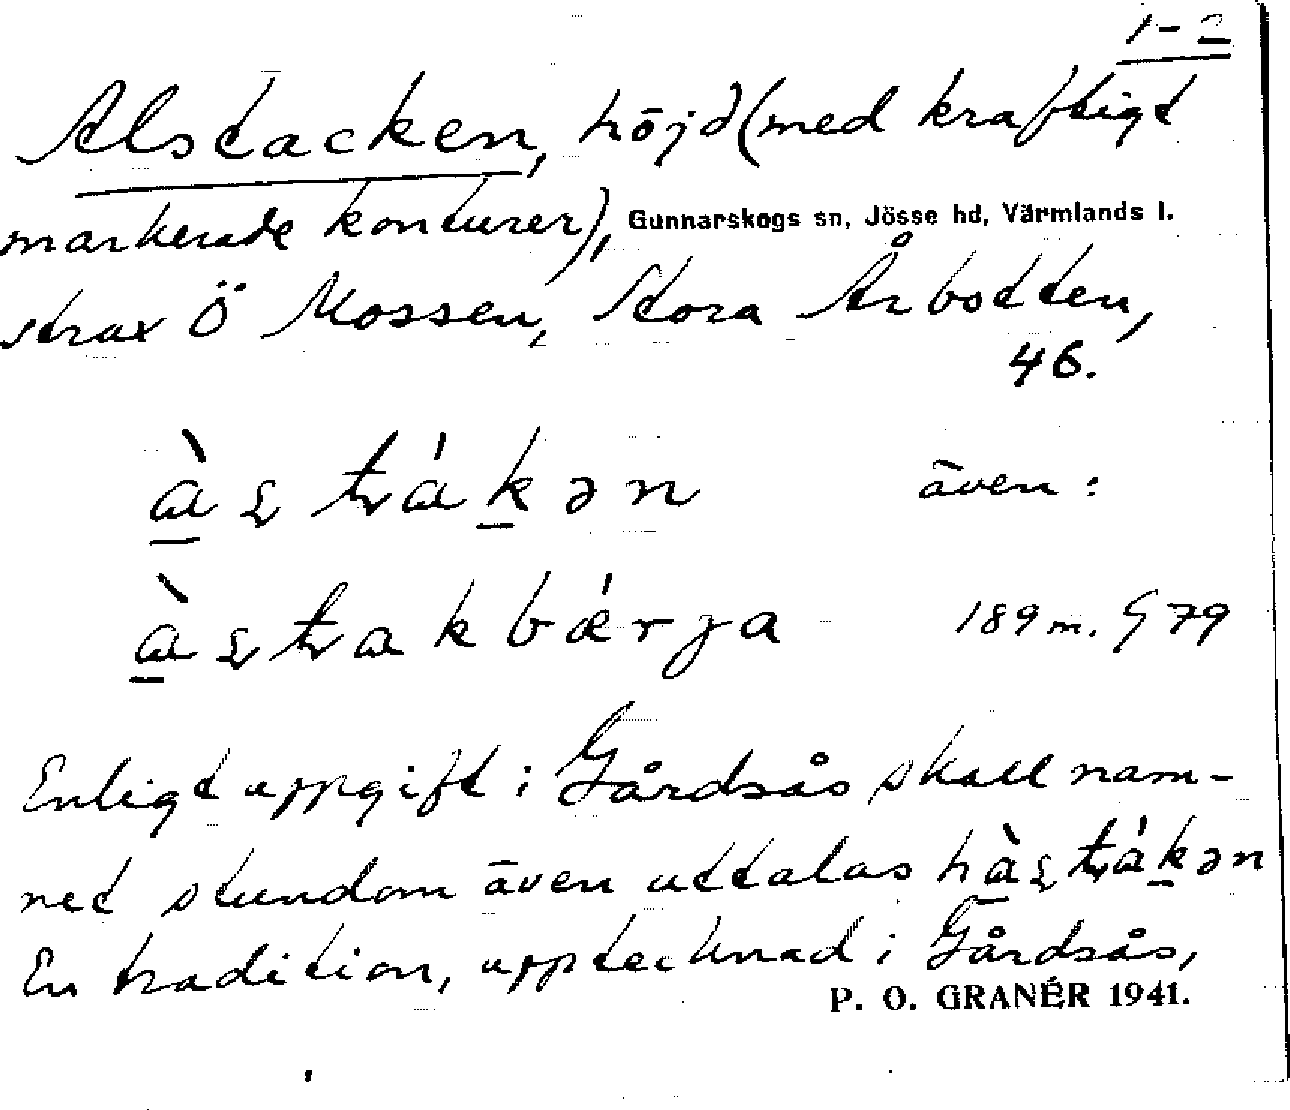 1-2
Alstacken, höjd (med kraftigt
markerade konturer), Gunnarskogs sn, Jösse hd, Värmlands l.
strax Ö Mossen, Stora Årbotten,
46.
även:
189 m. § 79
Enligt uppgift i Gårdsås skall nam-
net stundom även uttalas
En tradition, upptecknad i Gårdsås,
P. O. GRANÉR 1941.